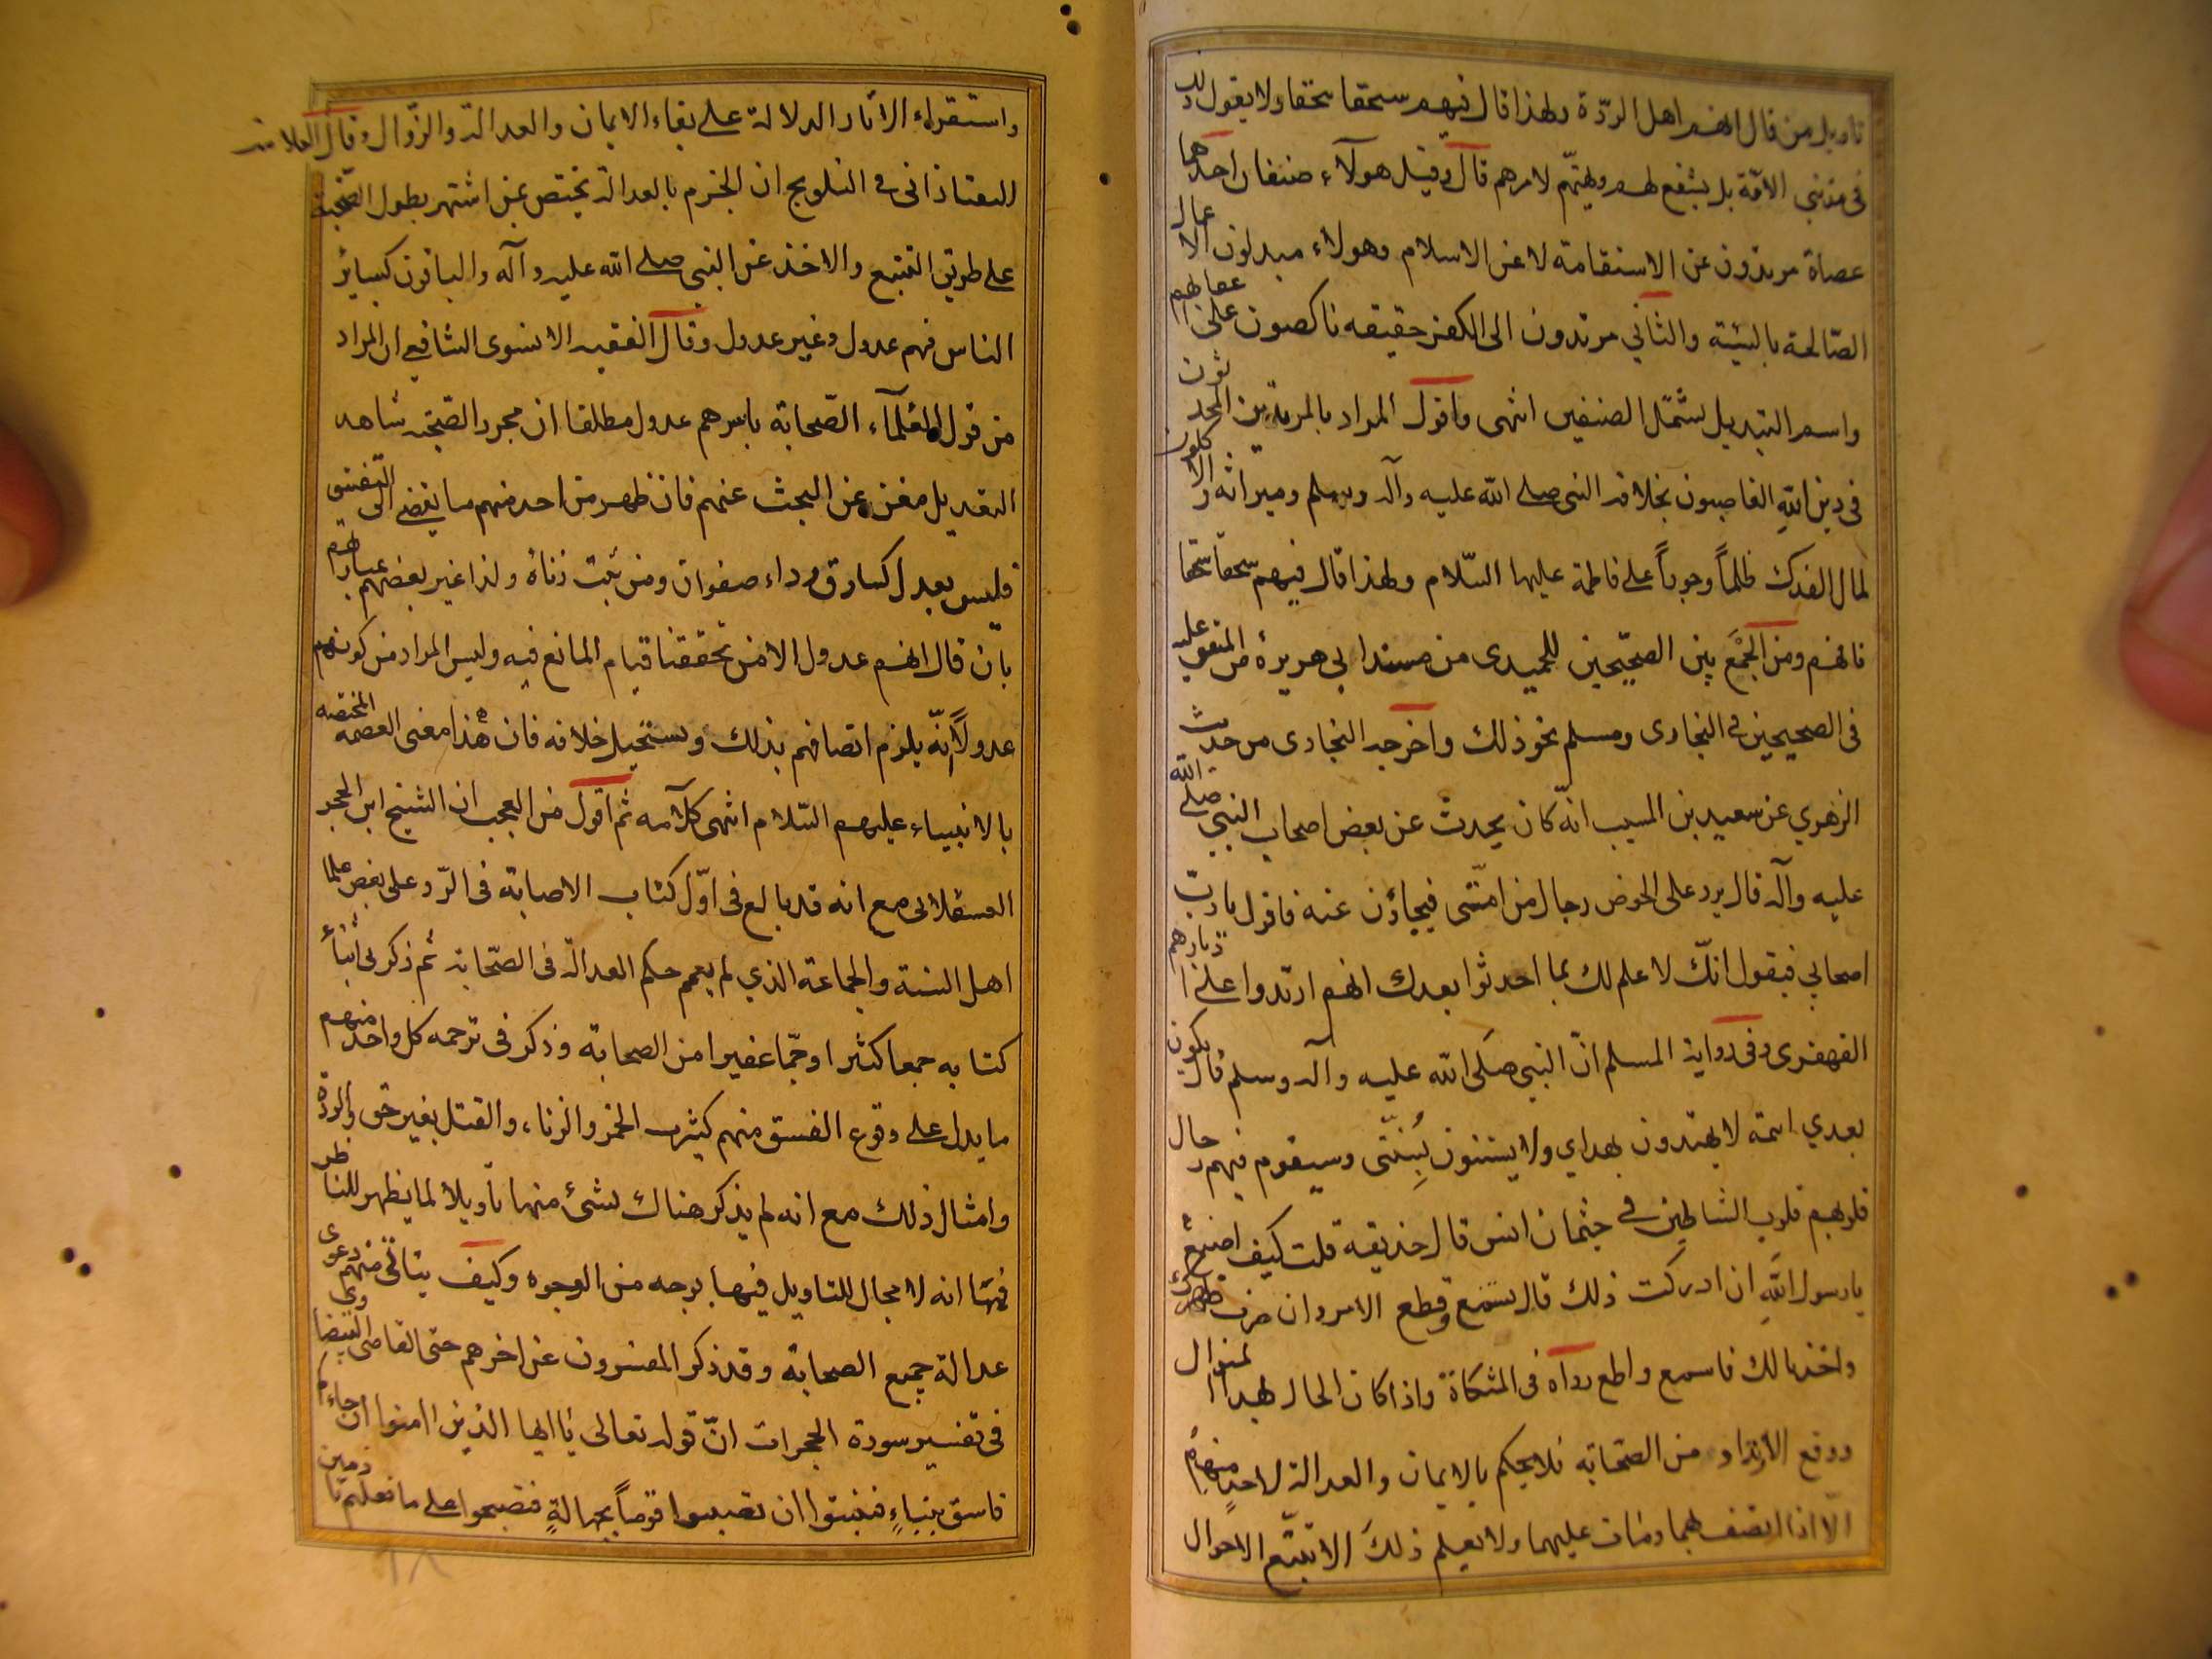 تاويل من قال انهم اهل الردّة ولهذا قال فيهم سحقا سحقا ولا يقول ذلك
فى مذنبى الامّة بل يشفع لهم ويهتمّ لامرهم قال وقيل هولآء صنفان احدهما
عصاة مرتدون عن الاستقامة لا عن الاسلام وهولاء مبدلون الاعمال
الصّالحة بالسّيئة والثانى مرتدون الى الكفر حقيقه ناكصون على اعقابهم
واسم التبديل يشمل الصنفين انتهى واقول المراد بالمرتدين المحدثون
فى دين الله الغاصبون بخلافة النبى صلى الله عليه وآله وسلم وميراثه والاكلون
لمال الفدك ظلماً وجوباً على فاطمة عليها السّلام ولهذا قال فيهم سحقا سحقا
فافهم ومن الجَمْع بين الصحيحين للحميدى من مسند ابى هريرة من المتفق عليه
فى الصحيحين فى البخارى ومسلم نحو ذلك واخرجه البخارى من حديث
الزهري عن سعيد بن المسيب انّه كان يحدث عن بعض اصحاب النبي صلى الله
عليه وآله قال يرد على الحوض رجال من امّتى فيجاؤن عنه فاقول يا ربّ
اصحابي فيقول انّك لا علم لك بما احدثوا بعدك انهم ارتدوا على ادبارهم
القهقرى وفى رواية المسلم انّ النبي صلى الله عليه وآله وسلم قال يكون
بعدي ائمة لا يهتدون بهداي ولا يستنون بسنّتى وسيقوم فيهم رجال
قلوبهم قلوب الشاطين فى جثمان انس قال حذيقه قلت كيف اصنع
يا رسول الله ان ادركت ذلك قال تسمع وقطع الامر وان ضرب ظهرك
واخذ مالك فاسمع واطع رواه فى المشكاة واذا كان الحال بهذا المنوال
ووقع الارتداد من الصّحابة فلا يحكم بالايمان والعدالة لاحدٍ منهم
الّا اذا اتصف بهما ومات عليهما ولا يعلم ذلك الا بتتبّع الاحوال
واستقراء الاثار الدلالة على بقاء الايمان والعدالة والزّوال وقال العلامة
التفتاذانى فى التلويح ان الجزم بالعدالة يختص بمن اشتهر بطول الصّحبة
على طريق التتبع والاخذ عن النبى صلى الله عليه وآله والباقون كسائر
الناس فهم عدول وغير عدول وقال الفقيه الاسنوى الشافعى ان المراد
من قول العلمآء الصّحابة باسرهم عدول مطلقا ان مجرد الصّحبة شاهد
التعديل مغن عن البحث عنهم فان ظهر من احد منهم ما يفضى الى التفسيق
فليس بعدل كسارق رداء صفوان ومن ثبت زناه ولذا غير بعضهم عبارتهم
بان قال انهم عدول الا من تحققنا قيام المانع فيه وليس المراد من كونهم
عدولاً انّه يلزم اتصافهم بذلك ويستحيل خلافه فان هذا معنى العصمه المختصه
بالانبياء عليهم السّلام انتهى كلامه ثم اقول من العجب ان الشيخ ابن الحجر
العسقلانى مع انه قد بالغ فى اوّل كتاب الاصابة فى الرّد على بعض علماء
اهل السنة والجماعة الذي لم يعمم حكم العدالة فى الصّحابة ثم ذكر فى اثناء
كتابه جمعا كثيرا وجمّا غفيرا من الصحابة وذكر فى ترجمه كل واحد منهم
ما يدل على وقوع الفسق منهم كشرب الخمر والزنا، والقتل بغير حق والردة
وامثال ذلك مع انه لم يذكر هناك لشئ منها تأويلا لما يظهر للناظر
انه لا مجال للتاويل فيها بوجه من الوجوه وكيف يتاتّى منهم دعوى
عدالة جميع الصحابة وقد ذكر المفسرون عن اخرهم حتى القاضى البيضاوى
فى تفسير سورة الحجرات انّ قوله تعالى يا ايها الذين امنوا ان جاءكم
فاسق بنباءٍ فتبينوا ان تصيبوا قوماً بجهالةٍ فتصبحوا على ما فعلتم نادمين